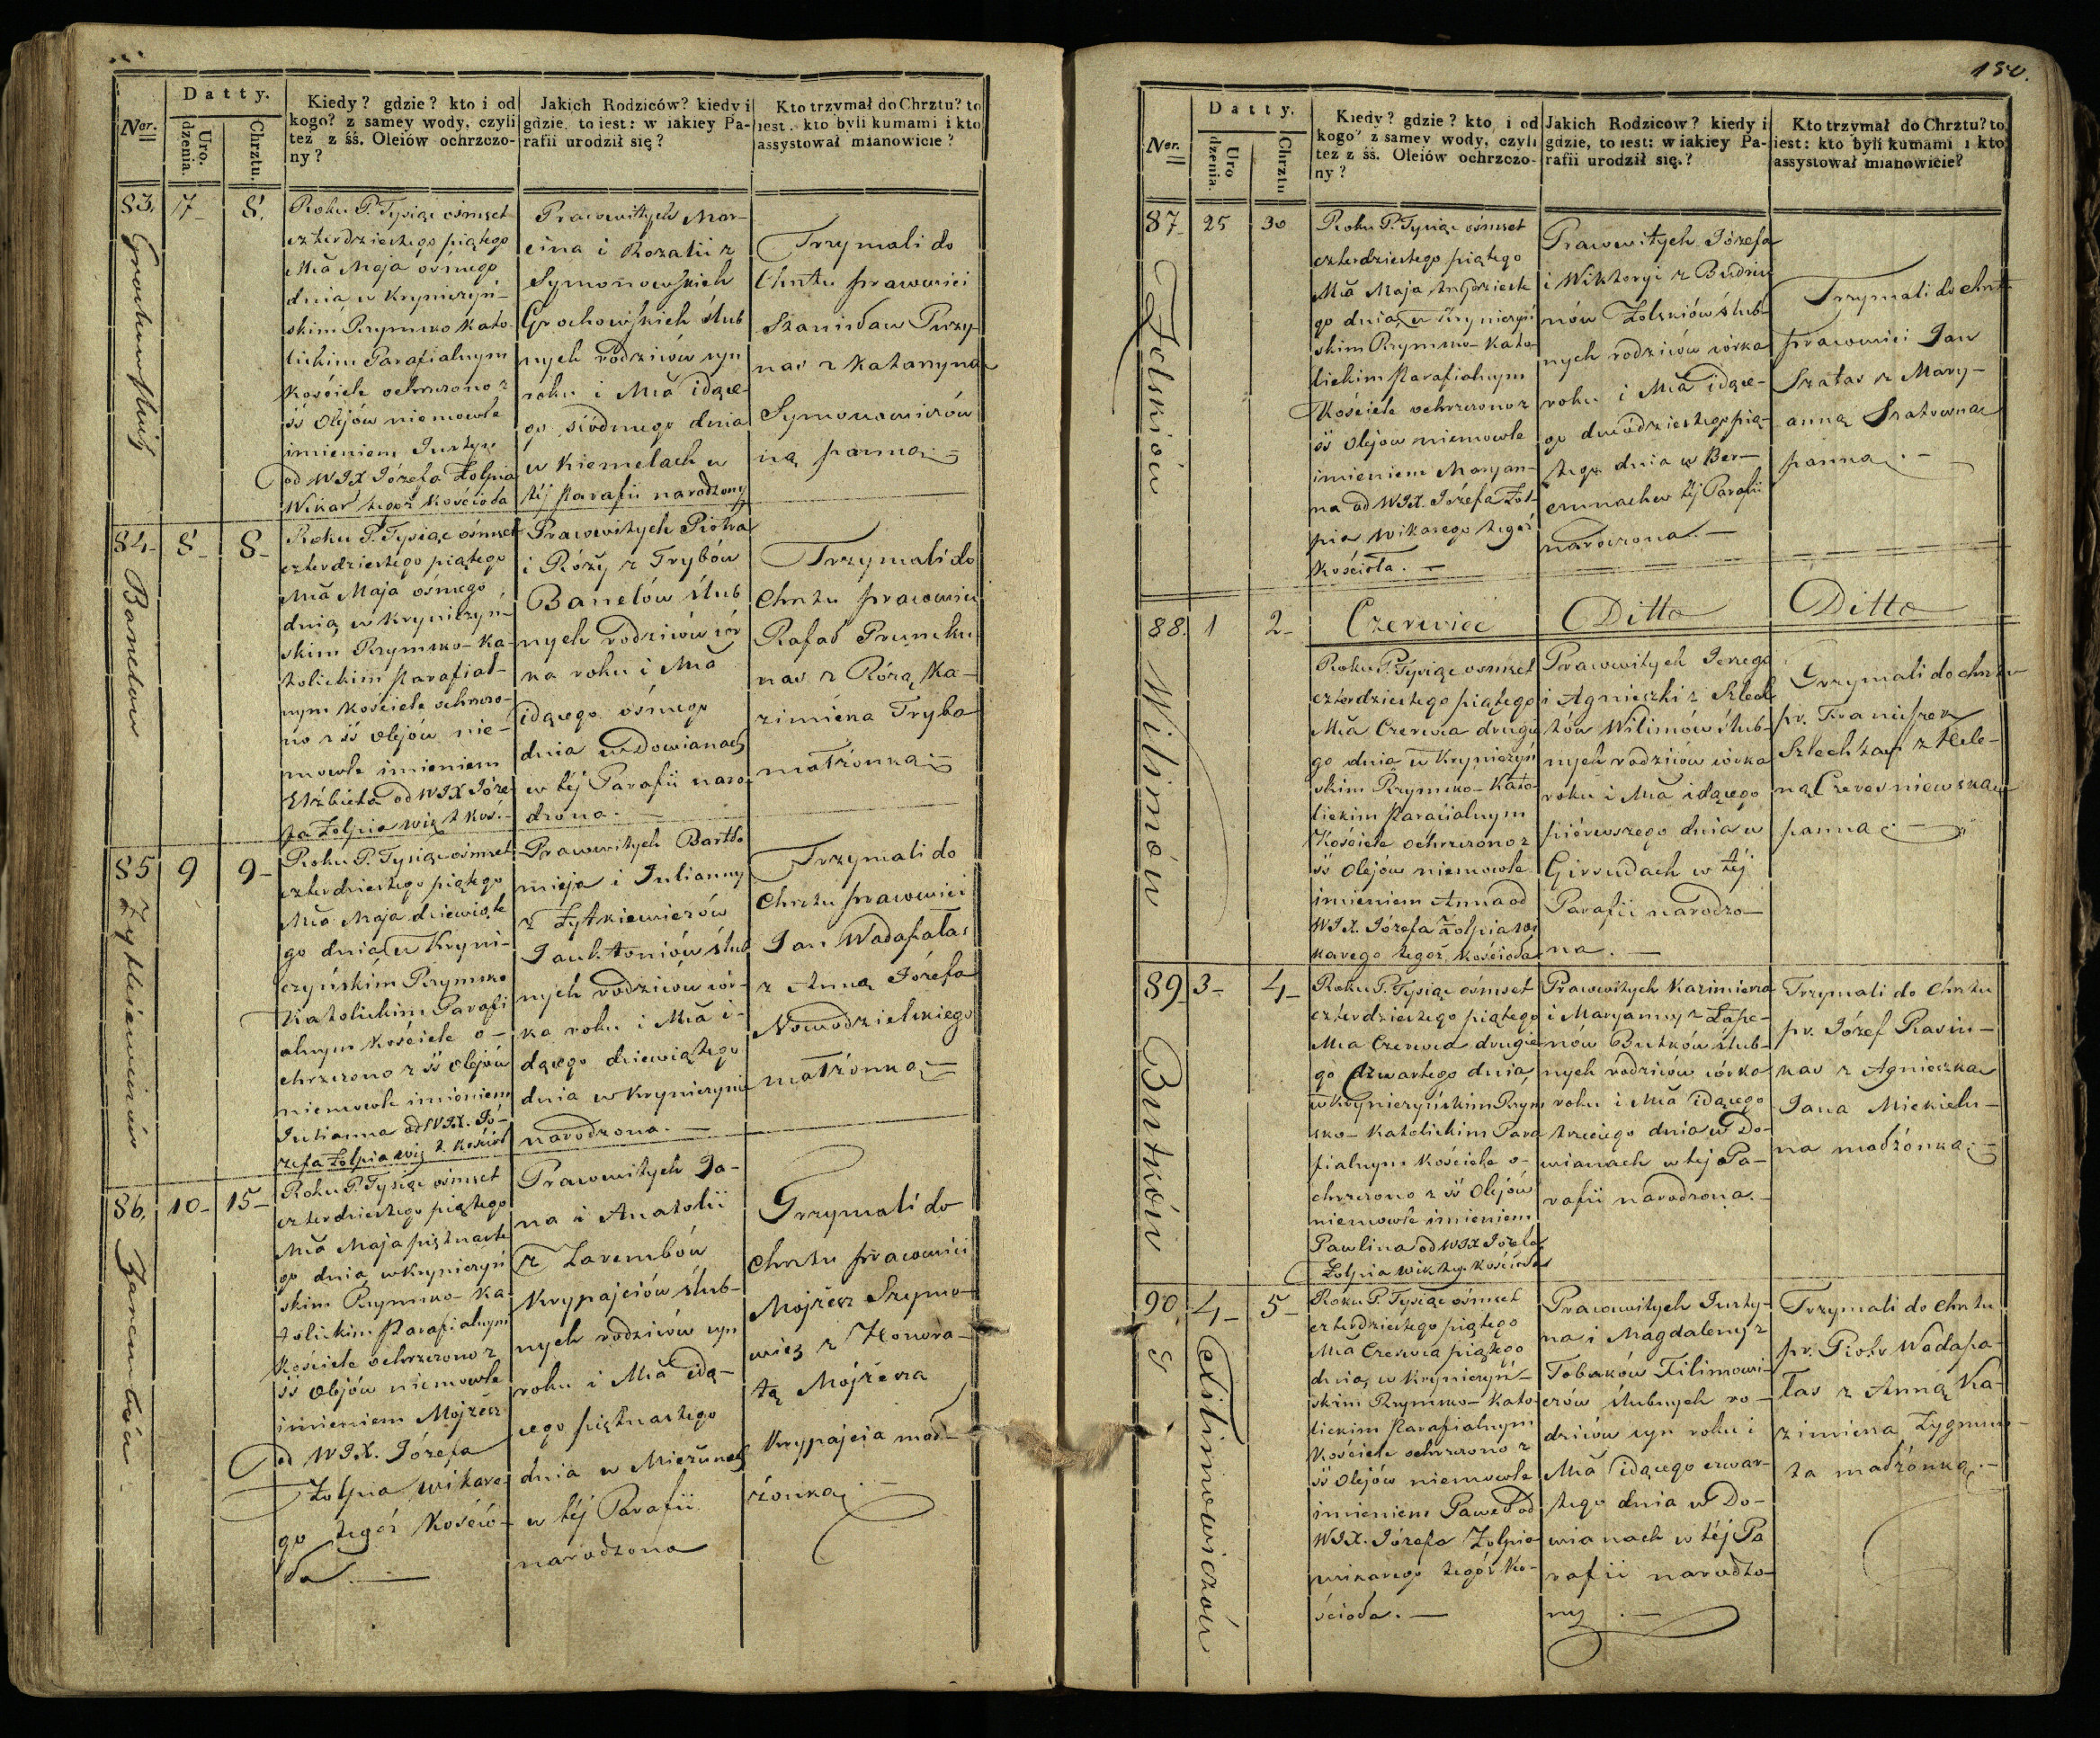 Datty.
Ner.
Uro.
dzenia.
Chrztu.
Kiedy? gdzie? kto i od
kogo? z samey wody, czyli
też z śś. Oleiów ochrzczo-
ny?
Jakich Rodziców? kiedy i
gdzie, to iest: w iakiey Pa-
rafii urodził się?
Kto trzymał do Chrztu? to
iest: kto byli kumami i kto
assystował mianowicie?
83. 7 8.
Roku P. Tysiąc ośmset
czterdziestego piątego
Mca Maja ósmego
dnia w Kryniczyń-
skim Rzymsko Kato-
lickim Parafialnym
Kościele ochrzczono z
śś Olejów niemowle
imieniem Justyn
od WJX Józefa Żołpia
Wikar tegoż Kościoła
Prawowitych Mar-
cina i Rozalii z
Symonowskich
Grochowskich ślub
nych rodziców syn
roku i Mca idące-
go siódmego dnia
w Kiemelach w
téj Parafii narodzony
Trzymali do
Chrztu pracowici
Stanisław
nas z Katarzyną
Symonowiczów
ną panną.
84 8 8
Banelów
Roku P. Tysiąc ośmset
czterdziestego piątego
Mca Maja ósmego
dnia w Kryniczyń-
skim Rzymsko-Ka-
tolickim Parafial-
nym Kościele ochrzczo-
no z śś Olejów nie-
mowle imieniem
Elżbieta od WJX Józe-
fa Żołpia wik t. Koś.
Prawowitych Piotra
i Róży z Trybów
Banelów ślub
nych rodziców cór
ka roku i Mca
idącego ósmego
dnia w Dowianach
w téj Parafii naro-
dzona.
Trzymali do
Chrztu pracowici
Rafał
nas z Różą Ka-
zimierza Tryba
małżonką
85 9 9
Żytkiewiczów
Roku P. Tysiąc ośmset
czterdziestego piątego
Mca Maja dziewiąte
go dnia w Kryni-
czyńskim Rzymsko
Katolickim Parafi
alnym Kościele o-
chrzczono z śś Olejów
niemowle imieniem
Julianna od WJX. Jó-
zefa Żołpia wik t. Kościoł
Prawowitych Bartło
mieja i Julianny
z Żytkiewiczów
ślub
nych rodziców cór-
ka roku i Mca i-
dącego dziewiątego
dnia w Krynicznie
narodzona.
Trzymali do
Chrztu pracowici
Jan Wadapałas
z Anną Józefa
Nowodzielskiego
małżonką
86. 10 15
Roku P. Tysiąc ośmset
czterdziestego piątego
Mca Maja piętnaste
go dnia w Kryniczyń
skim Rzymsko-Ka
tolickim Parafialnym
Kościele ochrzczono z
śś Olejów niemowle
imieniem Mojżesz
od WJX. Józefa
Żołpia wikare-
go tegoż Kościo-
ła.
Prawowitych Ja-
na i Anatolii
z Zarembów
Krypajciów ślub-
nych rodziców syn
roku i Mca idą-
cego piętnastego
dnia w
w téj Parafii
narodzona
Trzymali do
Chrztu pracowici
Mojżesz Szymo-
wicz z Honora-
tą Mojżesza
Krypajcia mał-
żonką.
150.
Datty.
Ner.
Uro
dzenia.
Chrztu
Kiedy? gdzie? kto i od
kogo? z samey wody, czyli
też z śś. Oleiów ochrzczo-
ny?
Jakich Rodziców? kiedy i
gdzie, to iest: w iakiey Pa-
rafii urodził się?
Kto trzymał do Chrztu? to
iest: kto byli kumami i kto
assystował mianowicie?
87 25 30
Żolskiów
Roku P. Tysiąc ośmset
czterdziestego piątego
Mca Maja trzydzieste
go dnia w Krynniczyń
skim Rzymsko-Kato-
lickim Parafialnym
Kościele ochrzczono z
śś Olejów niemowle
imieniem Maryan-
na od WJX. Józefa Żoł-
pia wikarego tegoż
Kościoła.
Prawowitych Józefa
i Wiktoryi z Budry
nów Żolskiów ślub-
nych rodziców córka
roku i Mca idące-
go dwódziestego pią-
tego dnia w Ber-
téj Parafii
narodzona.
Trzymali do chrztu
pracowici Jan
Szatas z Mary-
anną Szatowną
panną.
88. 1 2
Wilimów
Czerwiec Ditto Ditto
Roku P. Tysiąc ośmset
czterdziestego piątego
Mca Czerwca drugie
go dnia w Krynniczyń
skim Rzymsko-Kato-
lickim Parafialnym
Kościele ochrzczono z
śś Olejów niemowle
imieniem Anna od
WJX. Józefa Żołpia wi
karego tegoż Kościoła
Prawowitych Jerzego
i Agnieszki z Szlech
tów Wilimów ślub-
nych rodziców córka
roku i Mca idącego
piérwszego dnia w
Girsudach w téj
Parafii narodzo-
na.
Trzymali do chrztu
pr. Franciszek
Szlechtas z Hele-
ną Czeresniewską
panną.
89 3 4
Butków
Roku P. Tysiąc ośmset
czterdziestego piątego
Mca Czerwca drugie
go czwartego dnia
w Krynniczyńskim Rzym
sko-Katolickim Para
fialnym Kościele o-
chrzczono z śś Olejów
niemowle imieniem
Pawlina od WJX Józefa
Żołpia wik teg. Kościoła
Prawowitych Kazimierza
i Maryanny z Łape-
nów Butków ślub-
nych rodziców córka
roku i Mca idącego
trzeciego dnia w Do-
wianach w téj Pa-
rafii narodzona.
Trzymali do Chrztu
pr. Józef Rasiu-
kas z Agnieszką
Jana Mickielu-
na małżonką.
90. 4 5
Filimowiczów
Roku P. Tysiąc ośmset
czterdziestego piątego
Mca Czerwca piątego
dnia w Krynniczyń-
skim Rzymsko-Kato-
lickim Parafialnym
Kościele ochrzczono z
śś Olejów niemowle
imieniem Paweł od
WJX. Józefa Żołpia
wikarego tegoż Ko-
ścioła.
Prawowitych Justy-
na i Magdaleny z
Tobaków Filimowi-
czów ślubnych ro-
dziców syn roku i
Mca idącego czwar-
tego dnia w Do-
wianach w téj Pa
rafii narodzo-
ny.
Trzymali do Chrztu
pr. Piotr Wadapa-
łas z Anną Ka-
zimierza Zygmun-
ta małżonką.